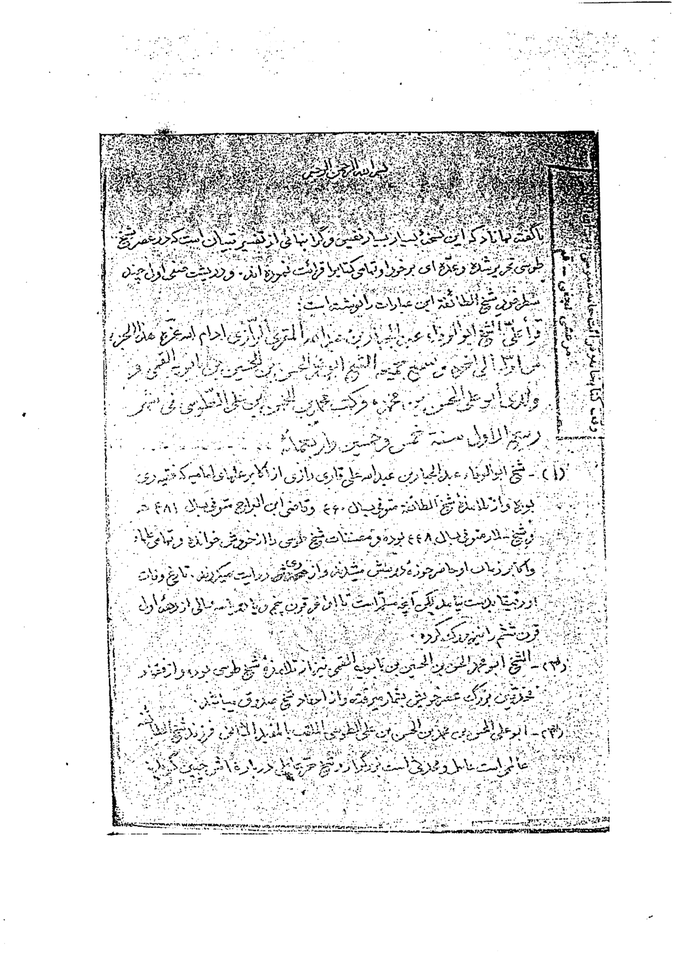 بسم الله الرحمن الرحیم
ناگفته نماناد که این نسخهٔ بسیار بسیار نفیس و گرانبهائی از تفسیر تبیان است که در عصر شیخ
طوسی تحریر شده و عدّه ای بر خود او تمامی کتاب را قرائت نموده اند. و در پشت صفحه اول چند
سطر خود شیخ الطائفة این عبارات را نوشته است:
قرأ علیّ الشیخ ابو الوفاء عبد الجبار بن عبد الله المقری الرازی ادام الله عزّه هذا الجزء
من اوّله الی آخره وسمع جمیعه الشیخ ابو محمد الحسن بن الحسین بن بابویه القمی و
ولدی أبو علی الحسن بن محمد وکتب محمد بن الحسن بن علی الطوسی فی شهر
ربیع الاول سنة خمس وخمسین واربعمائة
(۱)- شیخ ابو الوفاء عبد الجبار بن عبد الله علی قاری رازی از اکابر علمای امامیه که فقیه ری
بوده و از تلامذهٔ شیخ الطائفة متوفی بسال ۴۶۰ و قاضی ابن البراج متوفی بسال ۴۸۱
و شیخ سلار متوفی بسال ۴۴۸ بوده و مصنفات شیخ طوسی را از خودش خوانده و تمامی علماء
و اکابر زمان او حاضر حوزهٔ درسش میشدند و از روایت میکردند. تاریخ وفات
او بدست نیامد لیکن آنچه مسلّم است تا اواخر قرن پنجم و یا سالی از دههٔ اول
قرن ششم را نیز درک کرده.
(۲)- الشیخ ابو محمد الحسن بن الحسین بن بابویه القمی نیز از تلامذهٔ شیخ طوسی بوده و از فقهاء
محدّثین بزرگ عصر خویش بشمار میرفته و از احفاد شیخ صدوق میباشد.
(۳)- ابو علی الحسن بن محمد بن الحسن بن علی الطوسی الملقب بالمفید الثانی فرزند شیخ الطائفة
عالمی است عامل و محدثی است بزرگوار و شیخ حرّ عاملی در بارهٔ اش چنین گوید:
مرعشی نجفی - قم